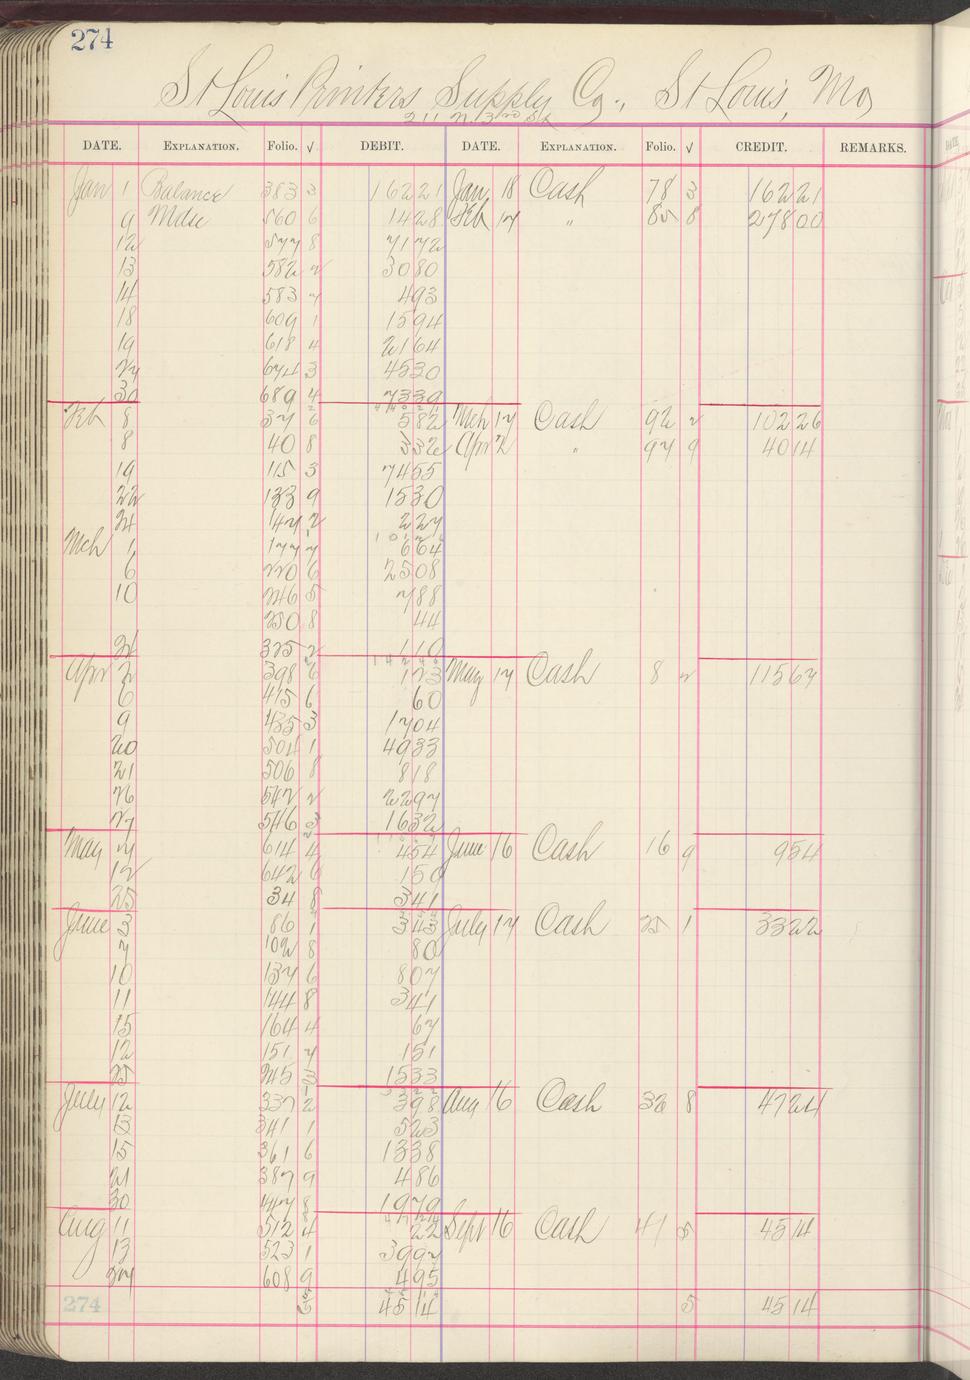 274
St Louis Printers Supply Co., St Louis, Mo
211 N. 3rd St
DATE. EXPLANATION. Folio. √ DEBIT. DATE. EXPLANATION. Folio. √ CREDIT. REMARKS.
Jan 1 Balance 383 3 162 21 Jan 18 Cash 78 3 162 21
9 Mdse 560 6 14 28 Feb 17 " 85 8 278 00
12 577 8 71 72
13 582 2 30 80
14 583 7 4 93
18 609 1 15 94
19 618 4 21 64
27 674 3 45 30
30 689 4 73 39
Feb 8 37 6 5 82 Mch 17 Cash 92 2 102 26
8 40 8 3 32 Apr 2 " 97 9 40 14
19 115 3 74 55
22 133 9 15 30
24 147 2 2 27
Mch 1 177 7 6 64
6 220 6 25 08
10 246 5 7 88
250 8 44
31 325 2 1 10
Apr 2 398 6 1 23 May 17 Cash 8 2 115 67
6 415 6 60
9 435 3 17 04
20 504 1 49 33
21 506 8 8 18
26 542 2 22 97
27 546 3 16 32
May 7 614 4 4 54 June 16 Cash 16 9 9 54
12 642 6 1 50
25 34 8 3 41
June 3 86 1 3 43 July 17 Cash 25 1 33 22
7 102 8 80
10 137 6 8 07
11 144 8 3 41
15 164 4 67
12 151 7 1 51
25 245 3 15 33
July 12 337 2 3 98 Aug 16 Cash 32 8 47 24
13 341 1 5 23
15 361 6 13 38
21 387 9 4 86
30 447 8 19 79
Aug 11 512 4 22 Sept 16 Cash 41 5 45 14
13 523 1 39 97
27 608 9 4 95
274 5 45 14 5 45 14